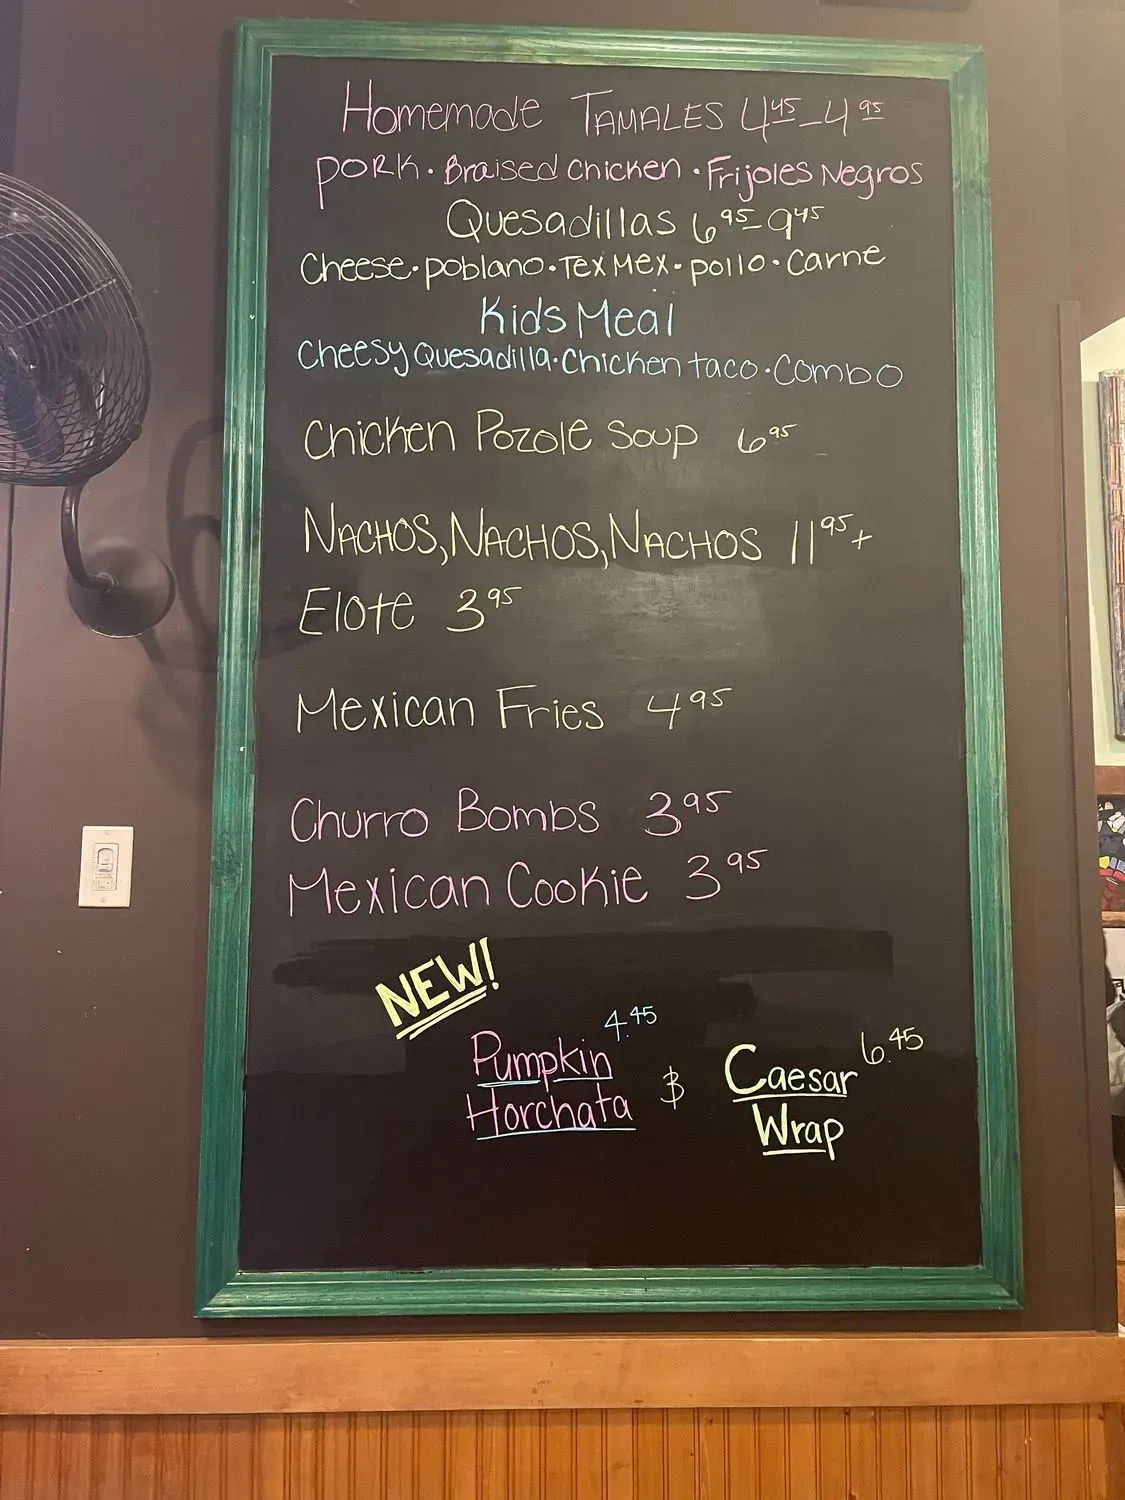 Homemade TAMALES 4.45-4.95
PORK · Braised Chicken · Frijoles Negros
Quesadillas 6.95-9.45
Cheese · poblano · Tex Mex · pollo · Carne
Kids Meal
Cheesy Quesadilla · Chicken taco · Combo
Chicken Pozole Soup 6.95
NACHOS, NACHOS, NACHOS 11.95+
Elote 3.95
Mexican Fries 4.95
Churro Bombs 3.95
Mexican Cookie 3.95
NEW!
Pumpkin Horchata 4.45
&
Caesar Wrap 6.45